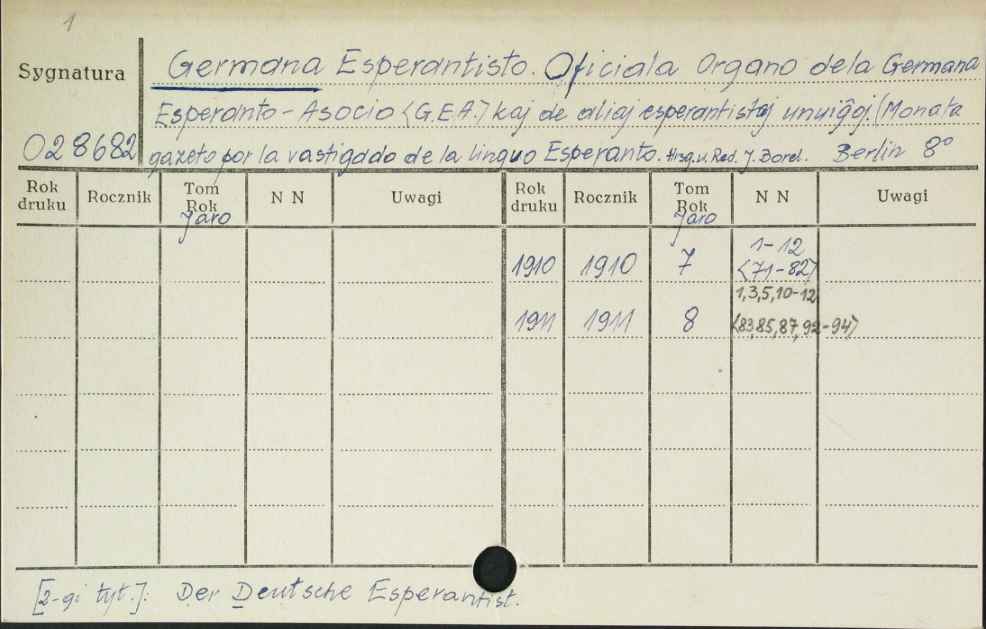 1
Sygnatura
Germana Esperantisto. Oficiala Organo dela Germana
Esperanto-Asocio <G.E.A.> kaj de aliaj esperantistaj unuiĝoj. (Monata
028682
gazeto por la vastigado de la linguo Esperanto. Hrsg. u. Red. J. Borel. Berlin 8°
Rok druku Rocznik Tom Rok Jaro N N Uwagi Rok druku Rocznik Tom Rok Jaro N N Uwagi
1910 1910 7 1-12 <71-82>
1911 1911 8 1,3,5,10-12 <83,85,87,92-94>
[2-gi tyt.]: Der Deutsche Esperantist.